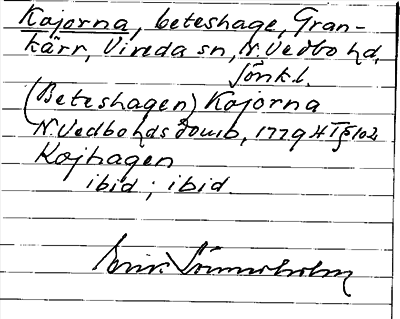 Kojorna, beteshage, Gran-
kärr, Vireda sn, N. Vedbo hd,
Jönk.l.
(Beteshagen) Kojorna
N. Vedbo hds domb, 1779 Ht § 102
Kojhagen
ibid; ibid.
Erik Sönnerholm